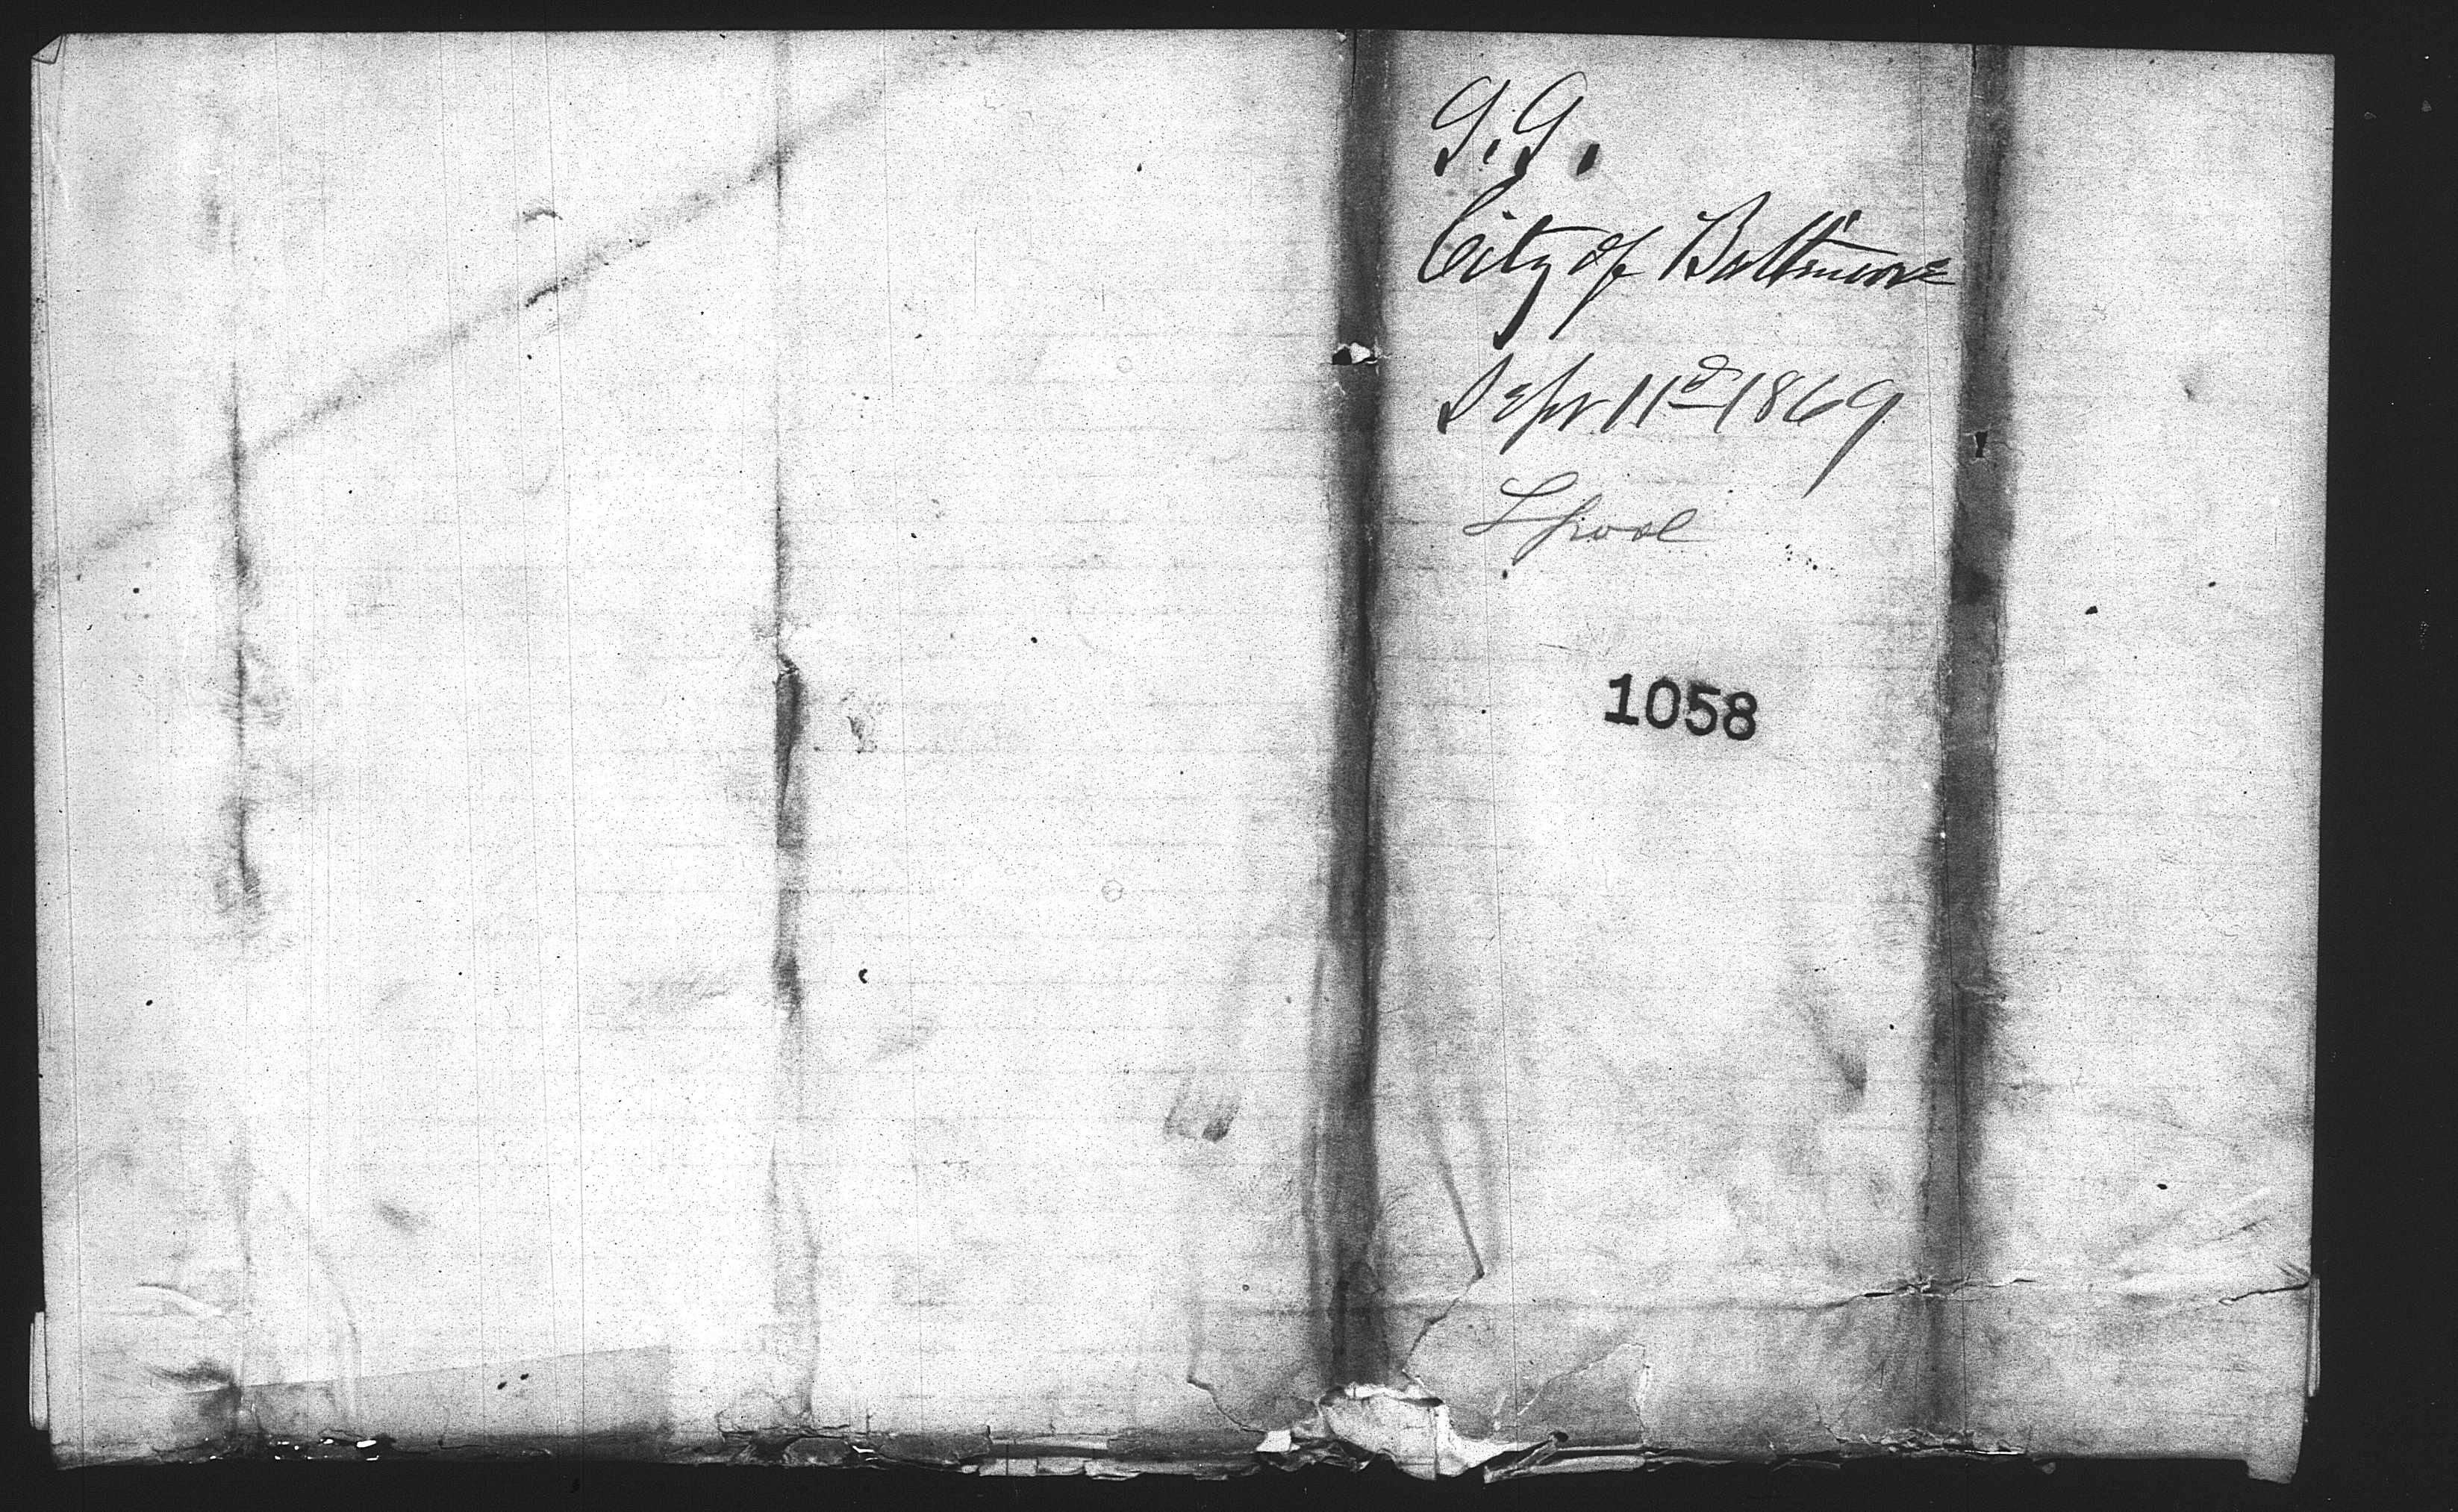 G. G.
City of Baltimore
Sept 11th 1869
L pool
1058